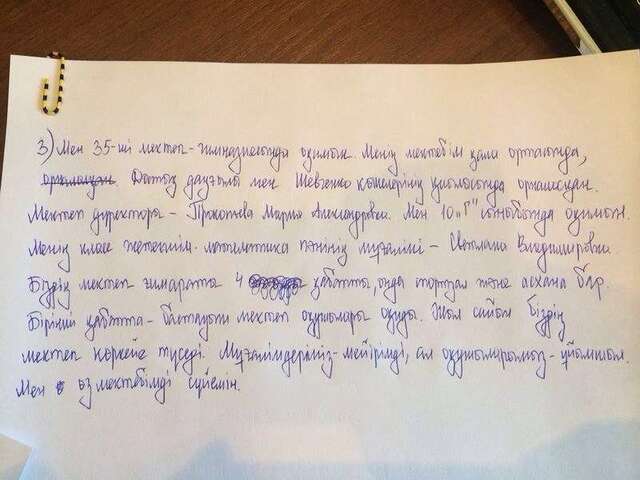 3) Мен 35-ші мектеп-гимназиясында оқимын. Менің мектебім қала ортасында,
орналасқан. Даңғыл мен Шевченко көшелерінің қиылысында орналасқан.
Мектеп директоры - Прокопьева Мария Александровна. Мен 10 „Г" сыныбында оқимын.
Менің класс жетекшім - математика пәнінің мұғалімі - Светлана Владимировна.
Біздің мектеп ғимараты 4 қабатты, онда спортзал және асхана бар.
Бірінші қабатта - бастауыш мектеп оқушылары оқиды. Жыл сайын біздің
мектеп көркейе түседі. Мұғалімдеріміз - мейірімді, ал оқушыларымыз - ұйымшыл.
Мен өз мектебімді сүйемін.